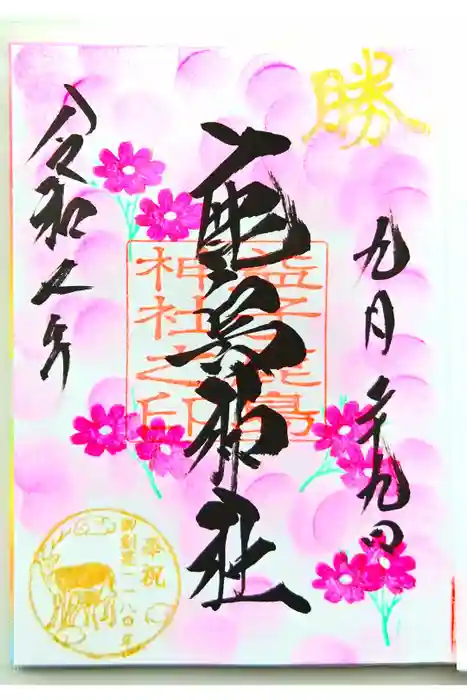 勝
九月二十九日
鹿島神社
益子鹿島
神社之印
令和 年
奉祝
御創建一一八〇年